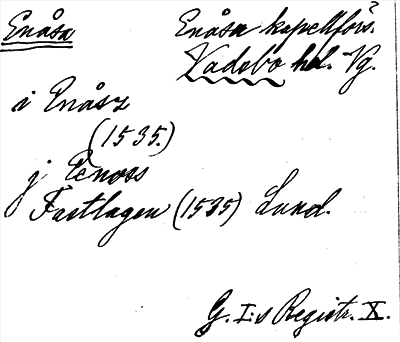 Enåsa Enåsa kapellförs.
Vadsbo hd. Vg.
i Enåsz
(1535.)
j Enoss
Fastlagen (1535) Lund.
G. I:s Registr. X.